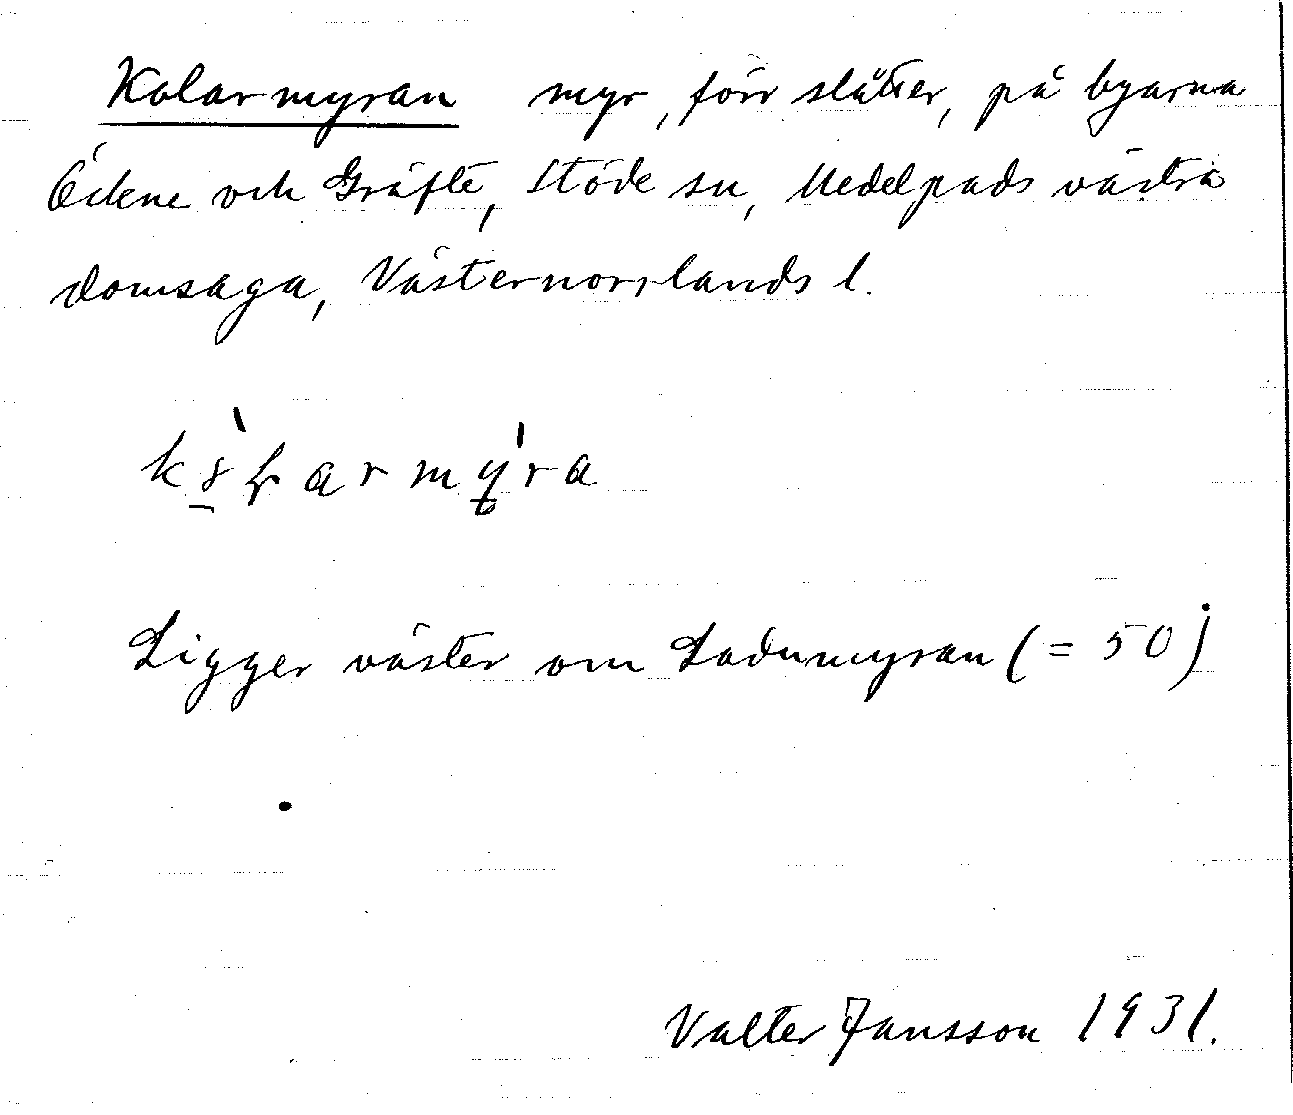 Kolarmyran myr, förr slåtter, på byarna
Ödene och Gräfte, Stöde sn, Medelpads västra
domsaga, Västernorrlands l.
Ligger väster om Ladumyran (= 50)
Valter Jansson 1931.